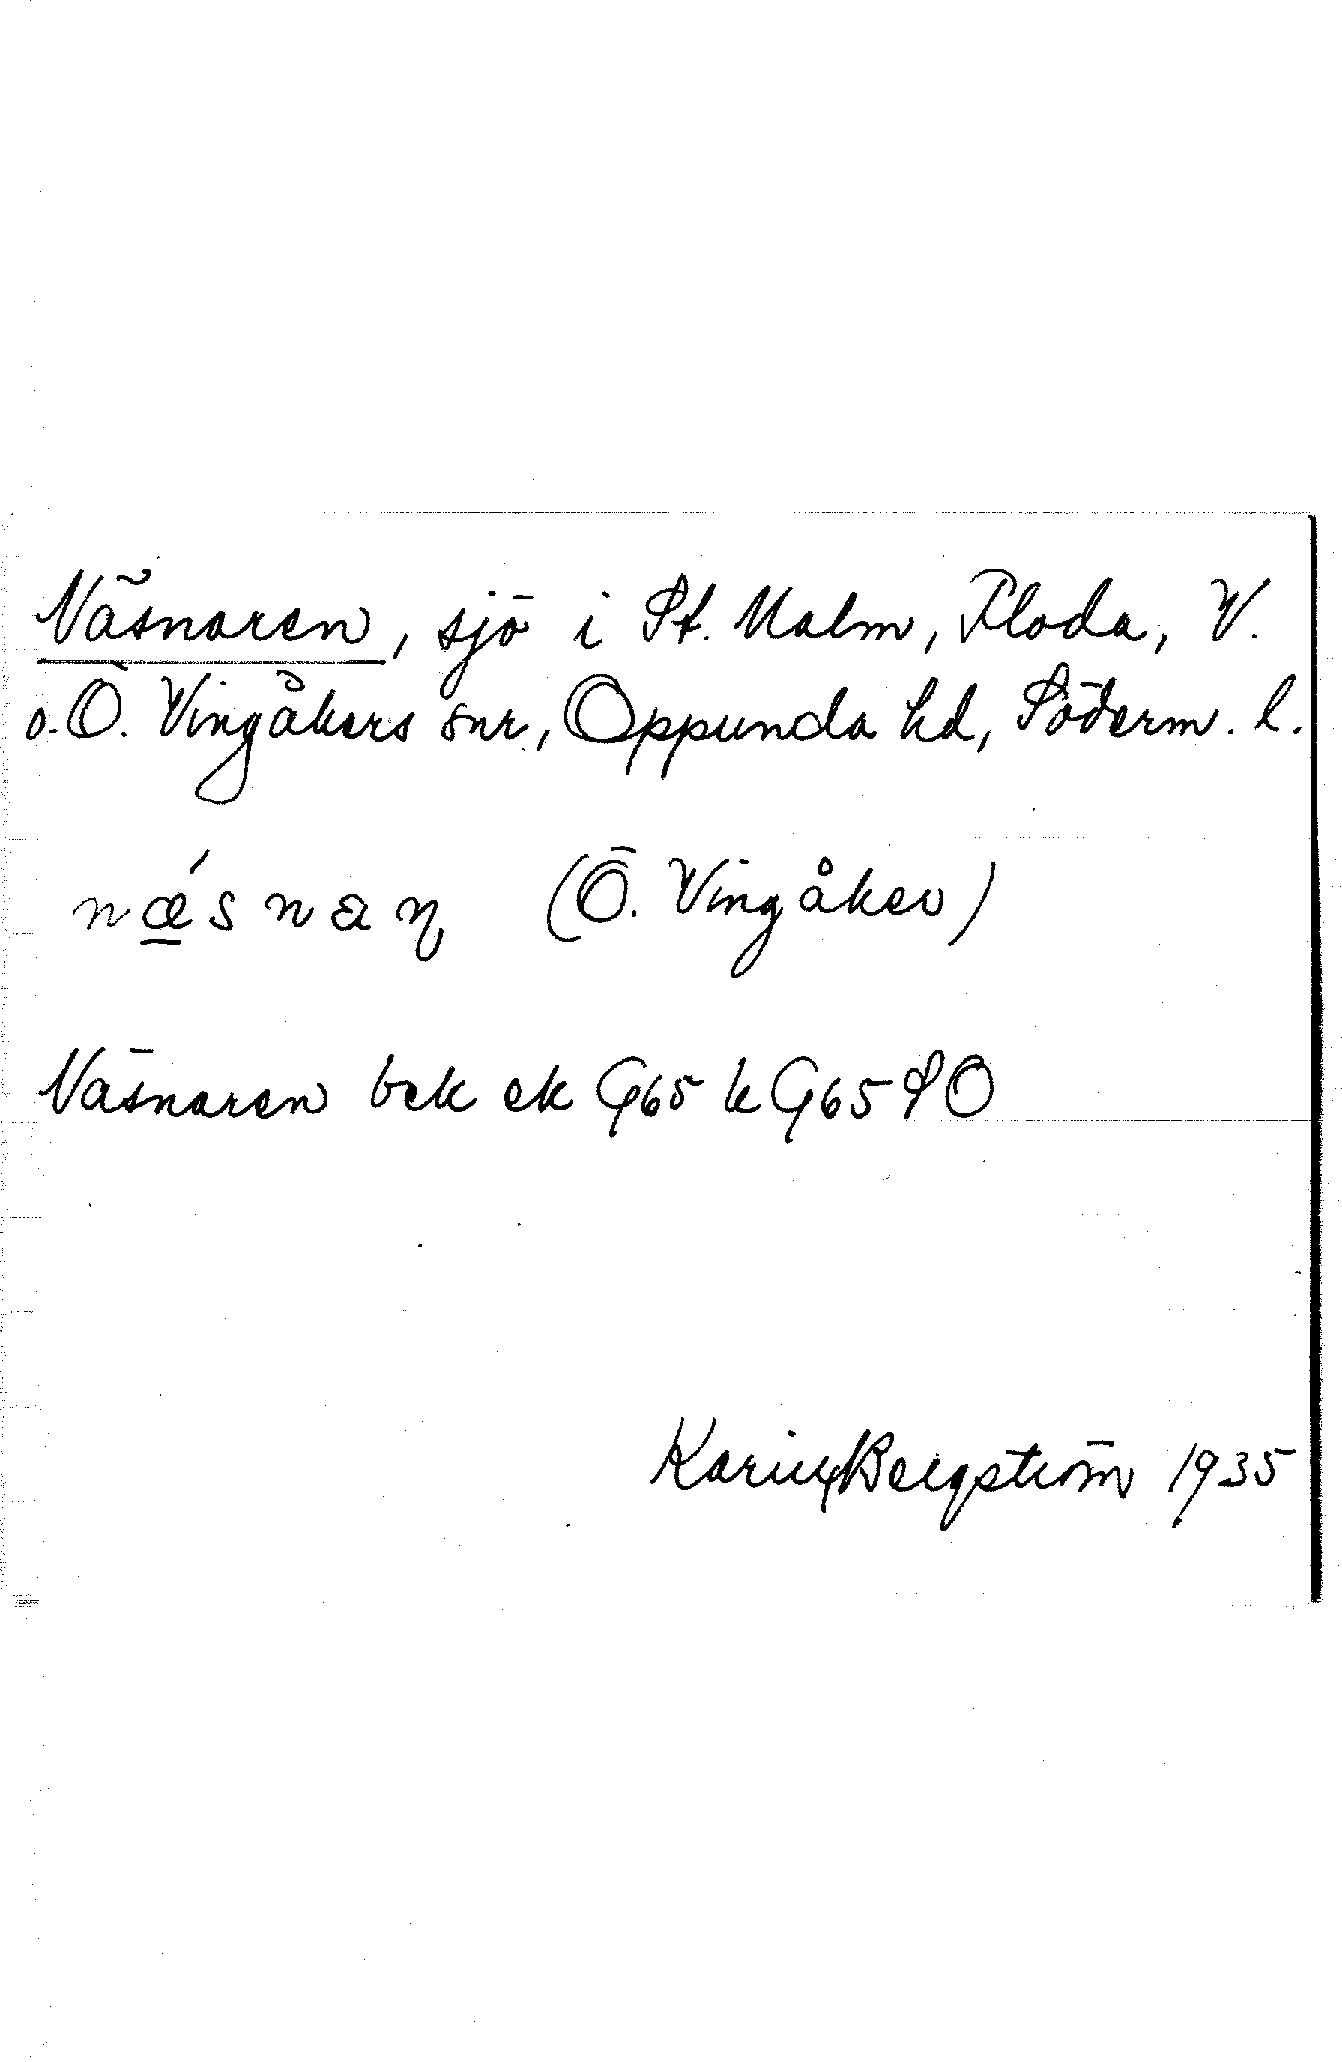 Näsnaren, sjö i St. Malm, Floda, V.
o. Ö. Vingåkers snr, Oppunda hd, Söderm. l.
nǽ̲snaɳ (Ö. Vingåker)
Näsnaren bek ek G65 k G65 SO
Karin Bergström 1935